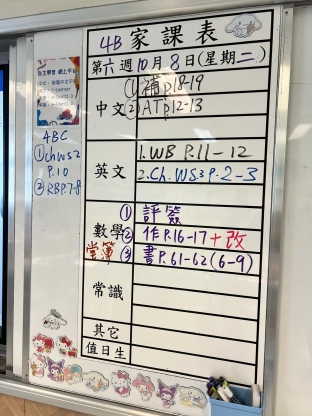 4B 家課表
第六週10月8日(星期二)
中文 ① 補p18-19
② ATp12-13
英文 1. WB P.11-12
2. Ch. WS3 P.2-3
數學 ① 評簽
② 作P.16-17+改
堂簿 ③ 書P.61-62(6-9)
常識
其它
值日生
自主學習 網上平台
4BC
① ChWS2
P.10
② RBP.7-8